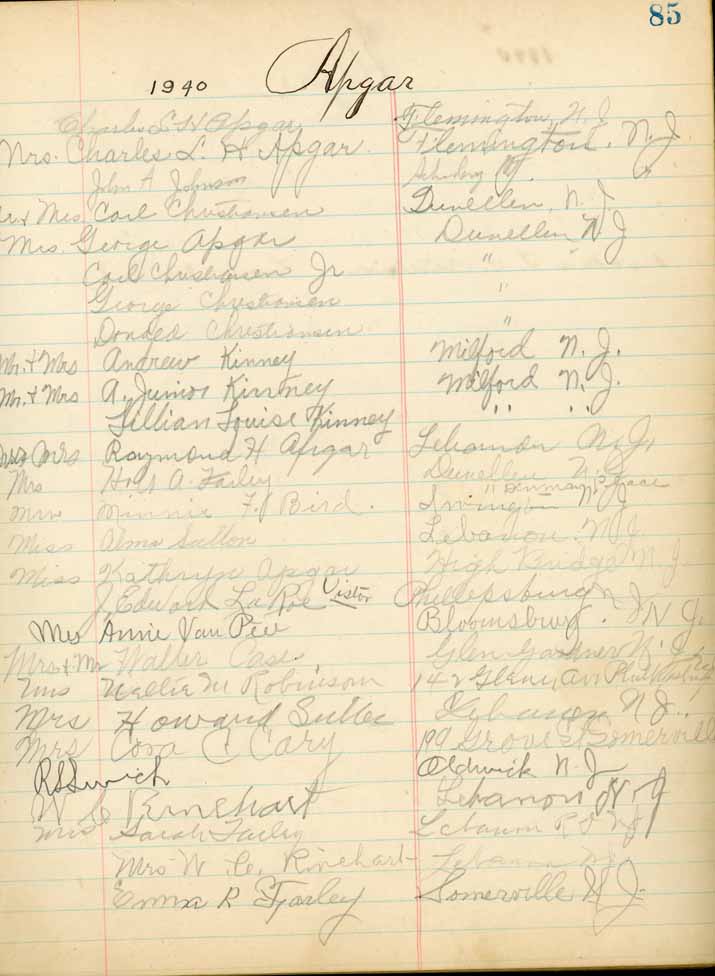 85
1940 Apgar
Charles L H Apgar Flemington, N. J.
Mrs. Charles L. H Apgar Flemington. N. J.
John A Johnson
& Mrs Carl Christiansen Dunellen, N. J
Mrs. George Apgar Dunellen N J
Carl Christiansen Jr " "
George Christiansen "
Donald Christiansen "
Mr. & Mrs Andrew Kinney Milford N. J.
Mr. & Mrs A. Junior Kinney Milford N. J.
Lillian Louise Kinney " "
Mrs Raymond H Apgar Lebanon N. J.
Mrs A. Farley Dunellen N. J
Minnie F. Bird. Irvington N J
Miss Alma Sutton Lebanon. N J
Miss Kathryn Apgar High Bridge N. J.
J. Edward LaRoe Vistor Phillipsburg N J
Mrs Annie Van Pelt Bloomsbury. N. J.
Mrs & Mr Walter Case. Glen Gardner N. J.
Nellie M Robinson 142
Mrs Howard Lebanon N J.
Mrs Cora C Cary 199 Grove St Somerville
Oldwick N. J
W C Rinehart Lebanon N J
Mrs Sarah Farley Lebanon N J
Mrs W. C. Rinehart Lebanon N J
Emma R Farley Somerville N J.